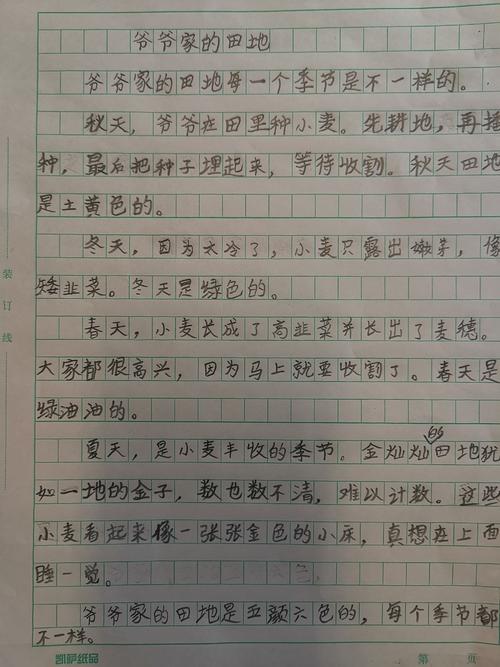 爷爷家的田地
爷爷家的田地每一个季节是不一样的。
秋天，爷爷在田里种小麦。先耕地，再播
种，最后把种子埋起来，等待收割。秋天田地
是土黄色的。
冬天，因为太冷了，小麦只露出嫩芽，像
矮韭菜。冬天是绿色的。
春天，小麦长成了高韭菜并长出了麦穗。
大家都很高兴，因为马上就要收割了。春天是
绿油油的。
夏天，是小麦丰收的季节。金灿灿的田地犹
如一地的金子，数也数不清，难以计数。这些
小麦看起来像一张张金色的小床，真想在上面
睡一觉。
爷爷家的田地是五颜六色的，每个季节都
不一样。
装订线
凯萨纸品
第 页